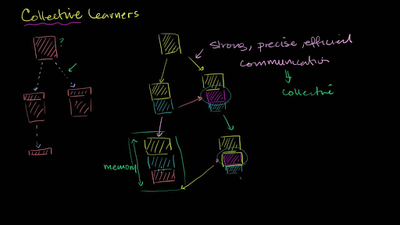 Collective Learners
?
strong, precise, efficient
communication
collective
memory